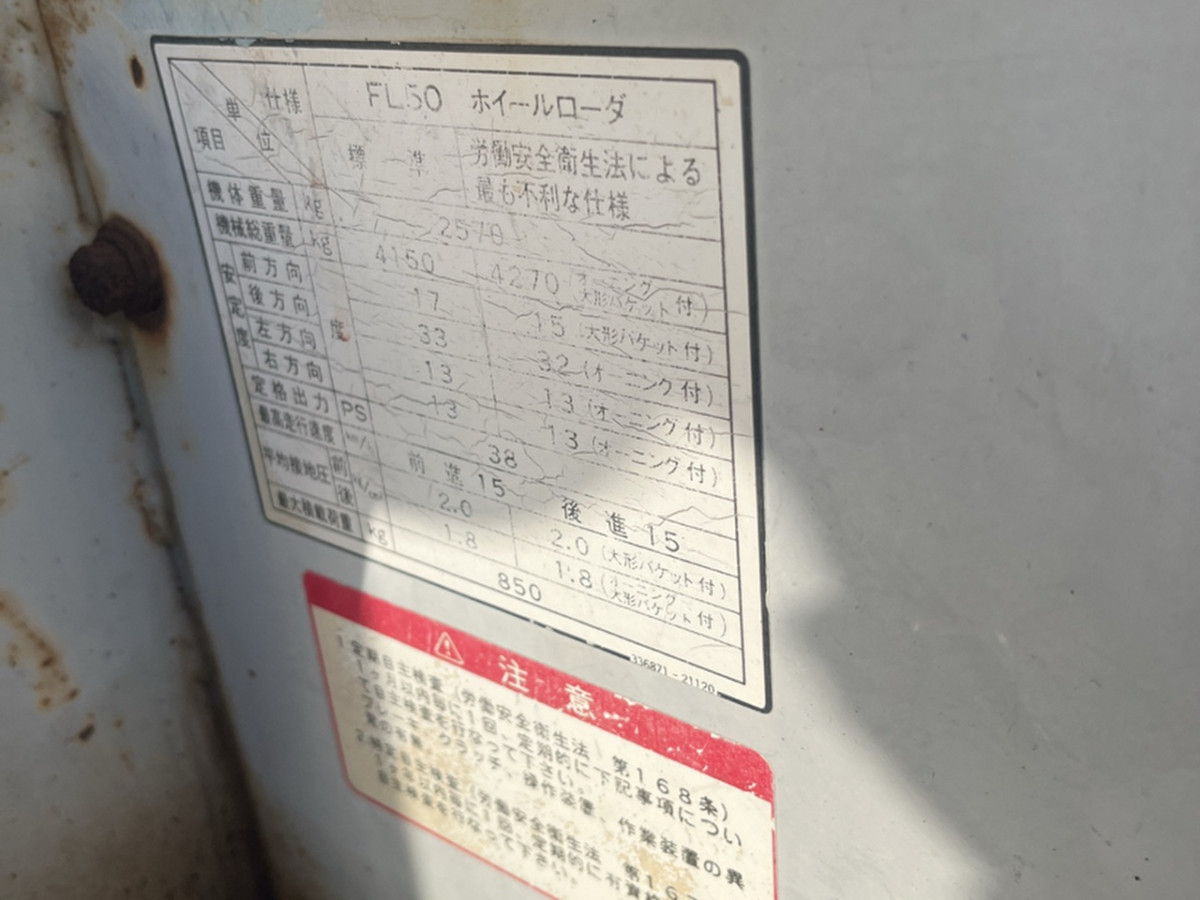 単位 仕様 項目 FL50 ホイールローダ
標準 労働安全衛生法による
最も不利な仕様
機体重量 kg 2570
機械総重量 kg 4150 4270 (オーニング 大形バケット 付)
安定度 前方向 度 17 15 (大形バケット付)
後方向 33 32 (オーニング付)
左方向 13 13 (オーニング付)
右方向 13 13 (オーニング付)
定格出力 PS 38
最高走行速度 前進 15 後進 15
平均接地圧 前 2.0 2.0 (大形バケット付)
後 1.8 1.8 (オーニング 大形バケット 付)
最大積載荷重 kg 850
336871-21120
注意
1.定期自主検査 (労働安全衛生法 第168条)
1ヶ月以内毎に1回、定期的に下記事項につい
て自主検査を行なって下さい。
ブレーキ、クラッチ、操作装置、作業装置の異
常の有無
2.特定自主検査 (労働安全衛生法 第16
1年以内毎に1回、定期的に有資格
自主検査を行なって下さい。